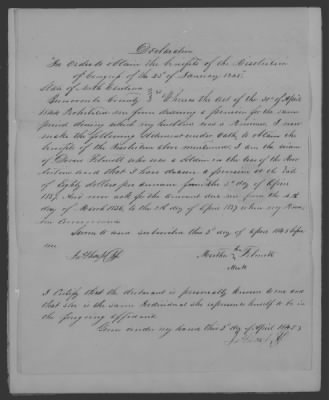 Declaration
In order to obtain the benefits of the Resolution
of Congress of the 23d of January 1845.
State of North Carolina
Buncombe County } Whereas the act of the 30th of April
1844 Prohibited me from drawing a pension for the same
period during which my husband was a Pensioner, I now
make the following statement under Oath, to obtain the
benefits of the Resolution above mentioned. I am the widow
of who was a soldier in the war of the Rev
olution and that I have drawn a pension at the rate
of Eighty dollars per annum from the 5th day of April
1837 And now ask for the amount due me from the 4th
day of March 1836, to the 5th day of April 1837 when my Pens
ion Commenced
Sworn to and subscribed this 5 day of April 1845 before
me
Martha her
mark
I Certify that the declarant is personally known to me and
that she is the same Individual she represents herself to be in
the foregoing affidavit
Given under my hand this 5 day of April 1845